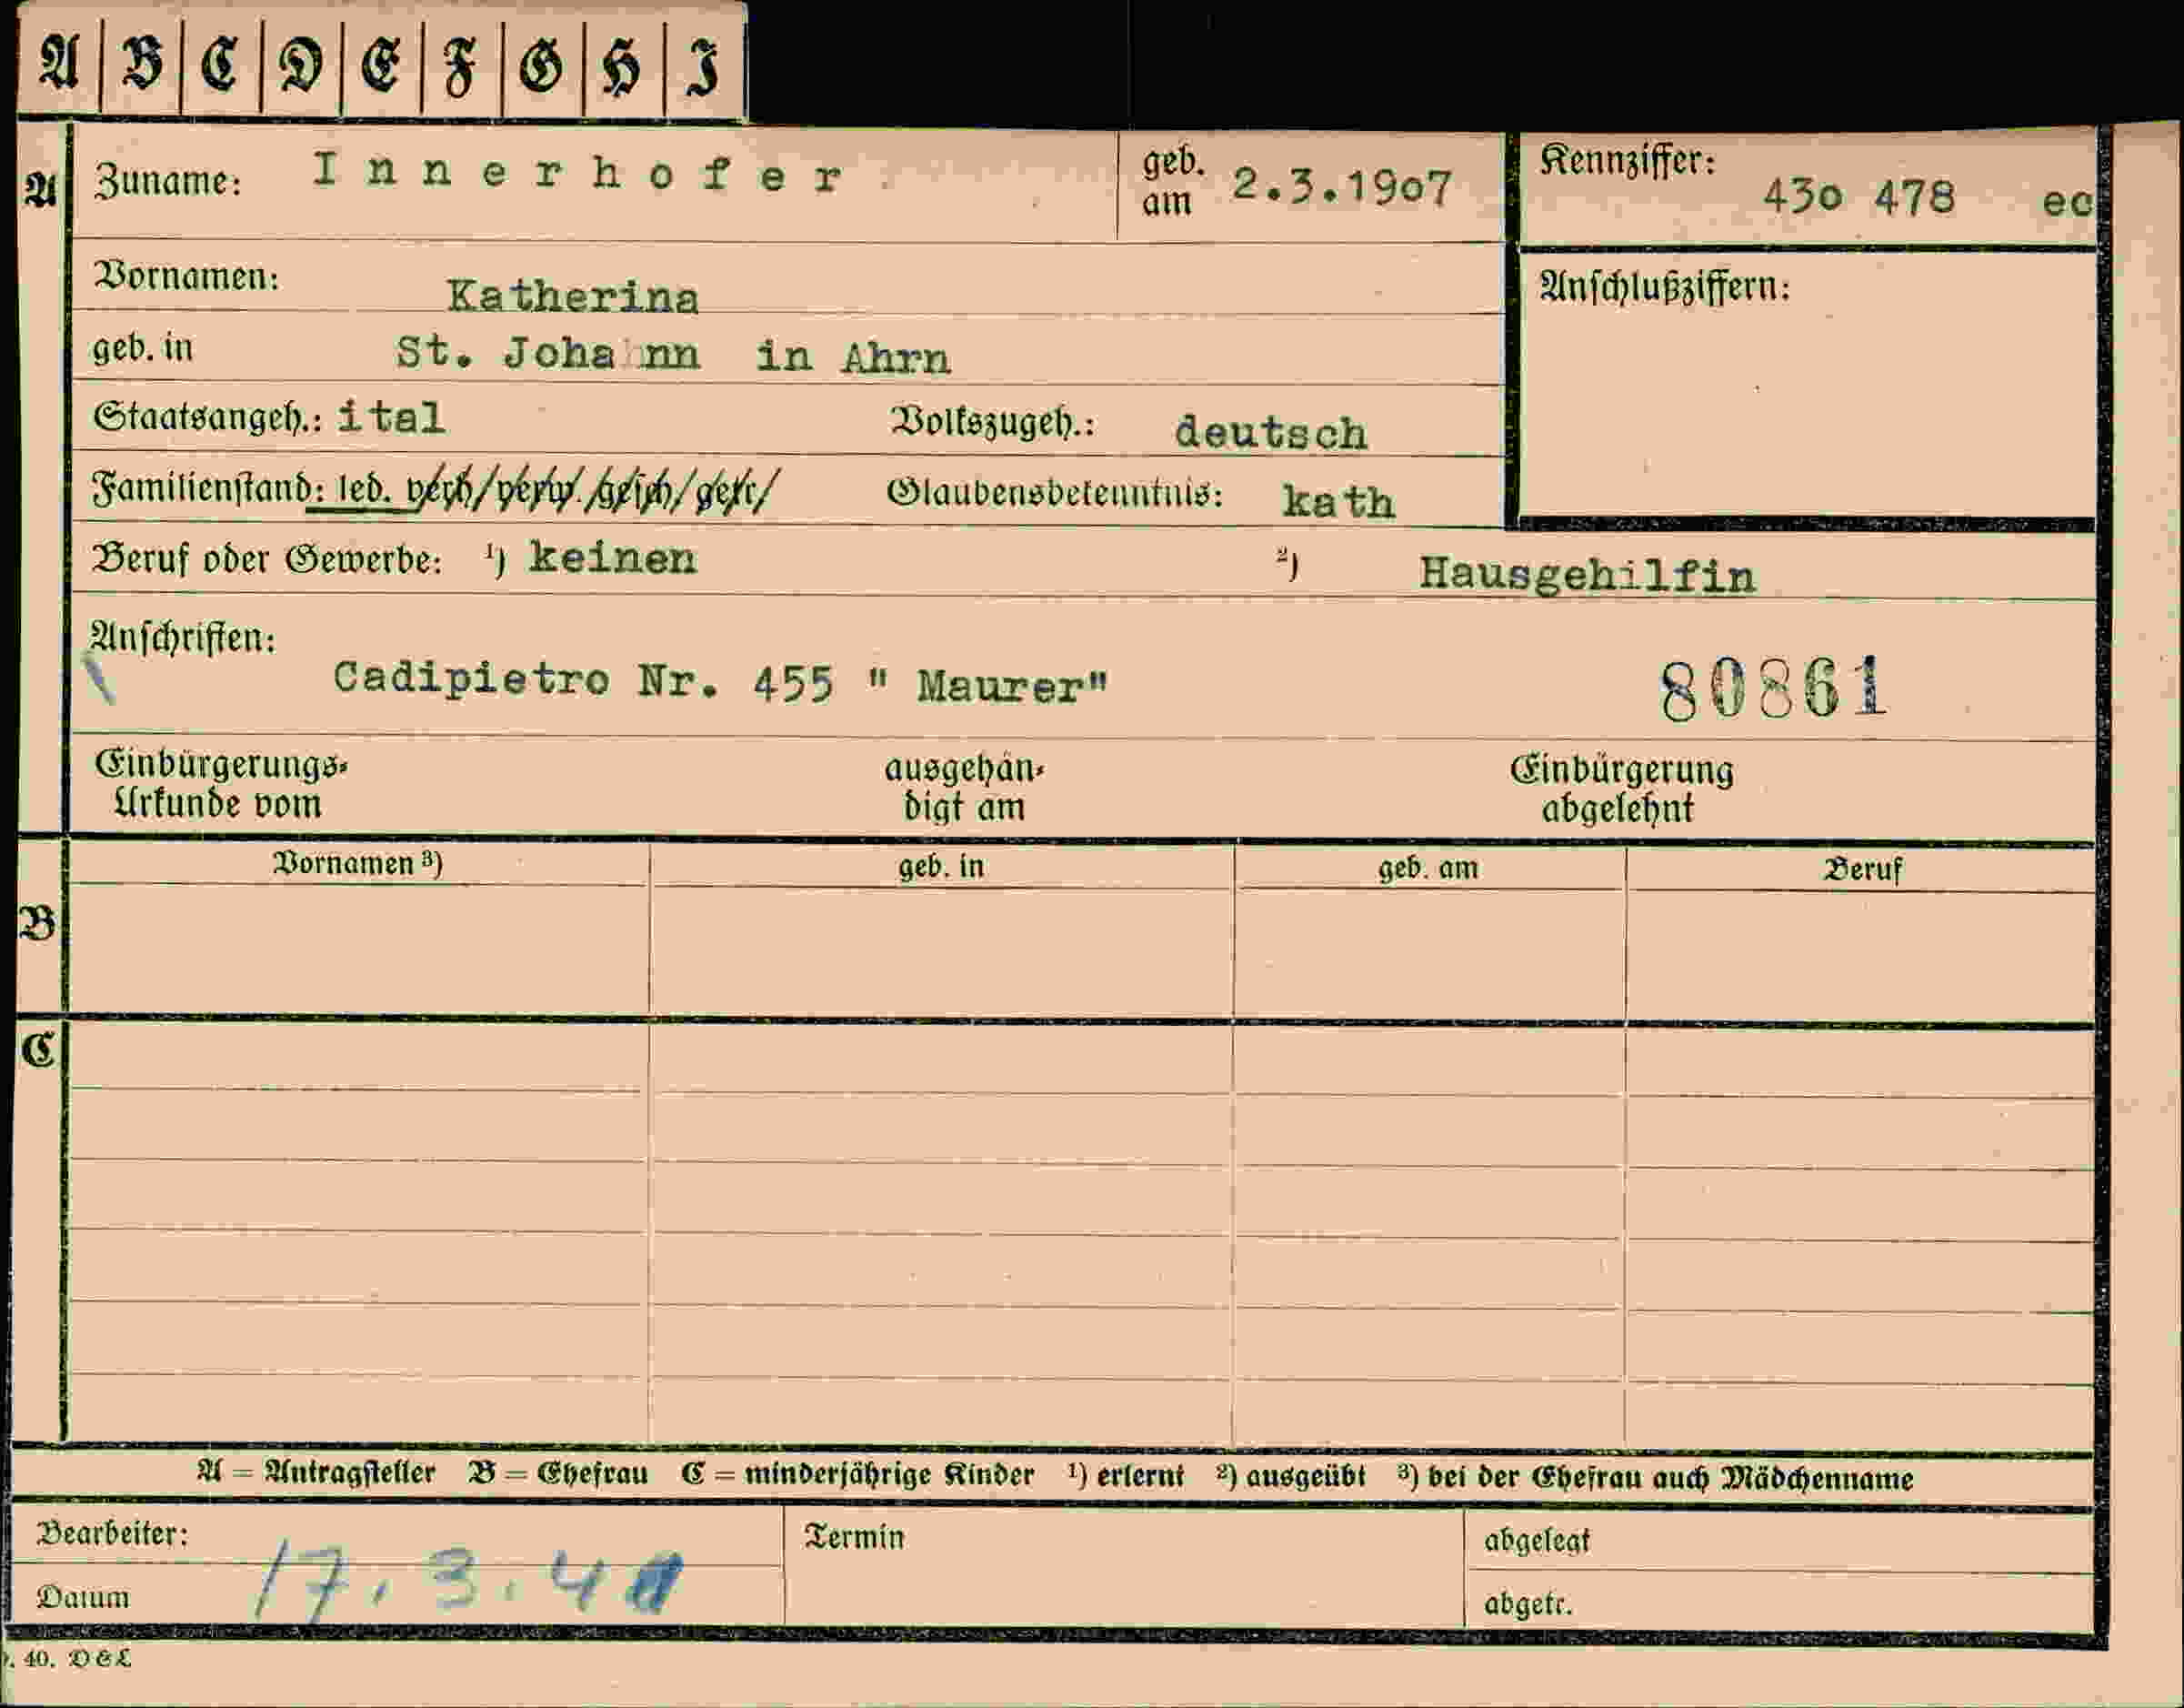 A B C D E F G H I
A Zuname: Innerhofer geb. am 2.3.1907 Kennziffer: 430 478 ec
Vornamen: Katherina Anschlußziffern:
geb. in St. Johann in Ahrn
Staatsangeh.: ital Volkszugeh.: deutsch
Familienstand: led. verh/verw./gesch/getr/ Glaubensbekenntnis: kath
Beruf oder Gewerbe: ¹) keinen ²) Hausgehilfin
Anschriften:
Cadipietro Nr. 455 " Maurer" 80861
Einbürgerungs- ausgehän- Einbürgerung
Urkunde vom digt am abgelehnt
Vornamen ³) geb. in geb. am Beruf
B
C
A = Antragsteller B = Ehefrau C = minderjährige Kinder ¹) erlernt ²) ausgeübt ³) bei der Ehefrau auch Mädchenname
Bearbeiter: Termin abgelegt
Datum 17.3.4 abgetr.
. 40. D & L